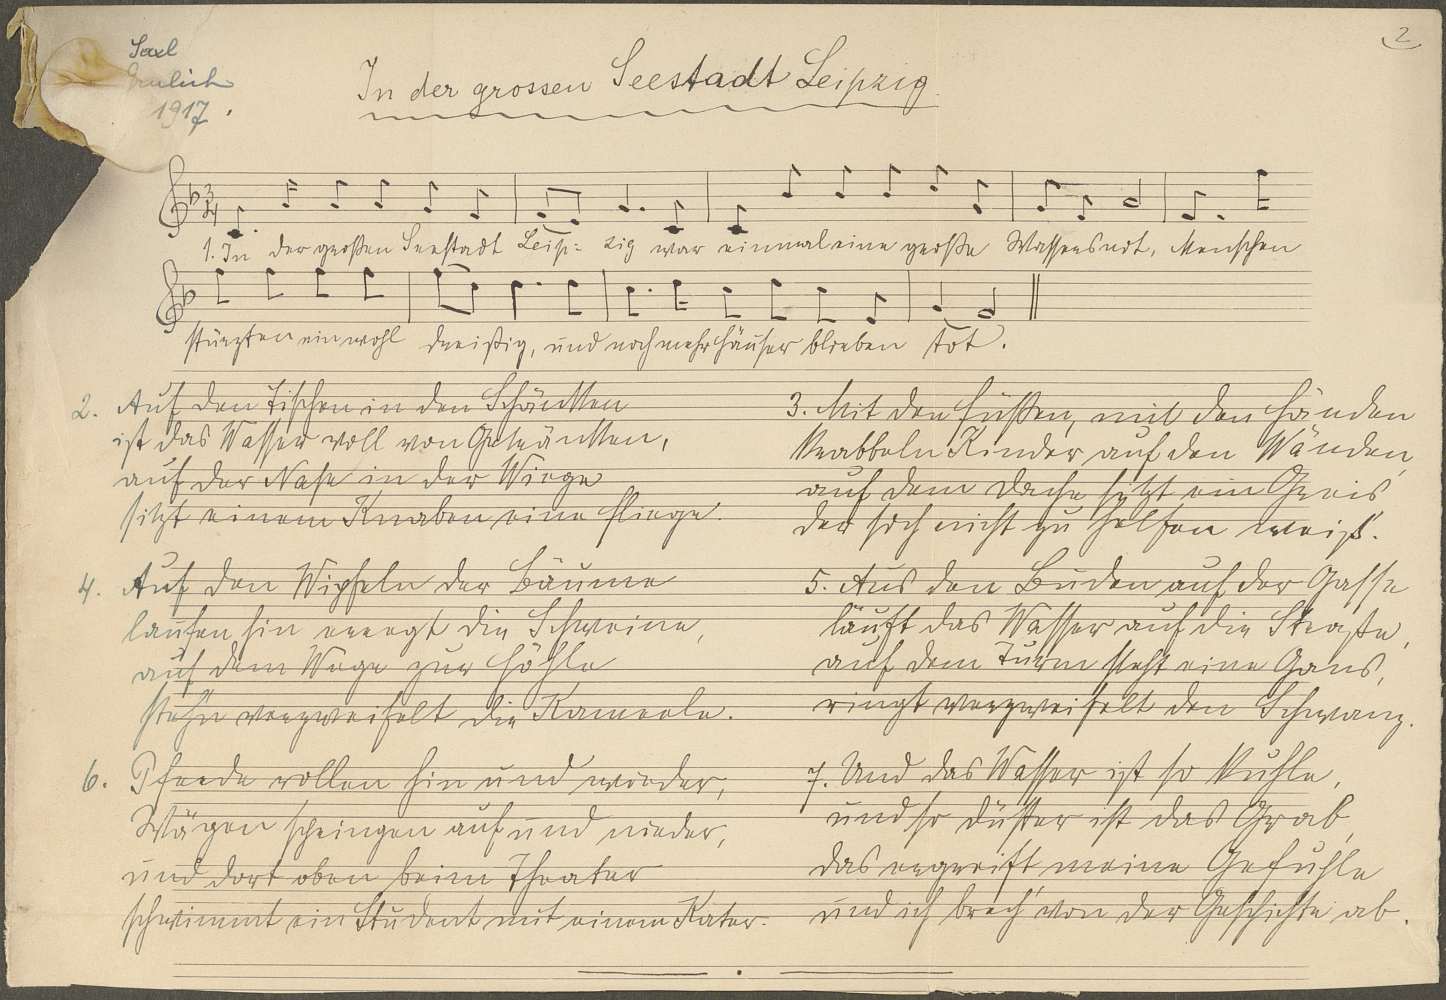 2
1917.
In der grossen Seestadt Leipzig
1. In der großen Seestadt Leip- zig war einmal eine große Wassersnot, Menschen
stürzten ein wohl dreißig, und noch mehr Häuser blieben tot.
2. Auf den Tischen in den Schänkken
ist das Wasser voll von Getränkken,
auf der Nase in der Wiege
sitzt einem Knaben eine Fliege.
3. Mit den Füßen, mit den Händen
krabbeln Kinder auf den Wänden,
auf dem Dache sitzt ein Greis
der sich nicht zu helfen weiß.
4. Auf den Wipfeln der Bäume
laufen hin erregt die Schweine,
auf dem Wege zur Höhle
steh'n verzweifelt die Kameele.
5. Aus den Buden auf der Gasse
läuft das Wasser auf die Straße,
auf dem Turm steht eine Gans,
ringt verzweifelt den Schwanz.
6. Pferde rollen hin und wieder,
Wägen springen auf und nieder,
und dort oben beim Theater
schwimmt ein Student mit einem Kater.
7. Und das Wasser ist so kuhle,
und so düster ist das Grab,
das ergreift meine Gefuhle
und ich brech' von der Geschichte ab.